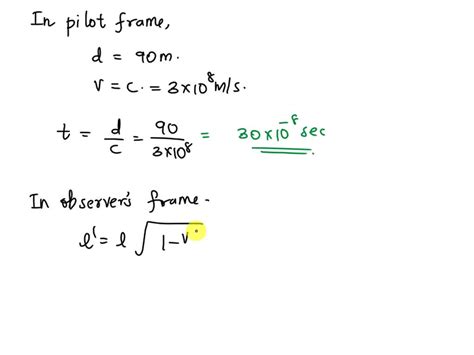 In pilot frame,
d = 90m.
V = C. = 3×10⁸m/s.
t = d/c = 90/3×10⁸ = 30×10⁻⁸ sec
In observer's frame -
l' = l √1-v